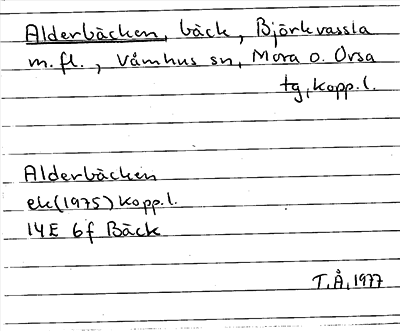 Alderbäcken, bäck, Björkvassla
m.fl., Våmhus sn, Mora o. Orsa
tg, Kopp.l.
Alderbäcken
ek(1975) Kopp.l.
14E 6f Bäck
T.Å, 1977